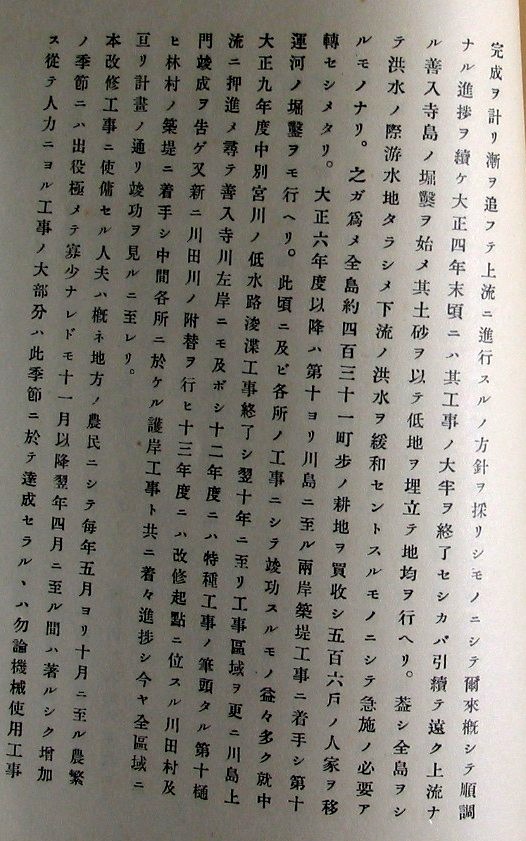 完成ヲ計リ漸ヲ追フテ上流ニ進行スルノ方針ヲ採リシモノニシテ爾來概シテ順調
ナル進捗ヲ續ケ大正四年末頃ニハ其工事ノ大半ヲ終了セシカバ引續テ遠ク上流ナ
ル善入寺島ノ堀鑿ヲ始メ其土砂ヲ以テ低地ヲ埋立テ地均ヲ行ヘリ。蓋シ全島ヲシ
テ洪水ノ際游水地タラシメ下流ノ洪水ヲ緩和セントスルモノニシテ急施ノ必要ア
ルモノナリ。之ガ爲メ全島約四百三十一町步ノ耕地ヲ買收シ五百六戶ノ人家ヲ移
轉セシメタリ。大正六年度以降ハ第十ヨリ川島ニ至ル兩岸築堤工事ニ着手シ第十
運河ノ堀鑿ヲモ行ヘリ。此頃ニ及ビ各所ノ工事ニシテ竣功スルモノ益々多ク就中
大正九年度中別宮川ノ低水路浚渫工事終了シ翌十年ニ至リ工事區域ヲ更ニ川島上
流ニ押進メ尋テ善入寺川左岸ニモ及ボシ十二年度ニハ特種工事ノ筆頭タル第十樋
門竣成ヲ吿ゲ又新ニ川田川ノ附替ヲ行ヒ十三年度ニハ改修起點ニ位スル川田村及
ヒ林村ノ築堤ニ着手シ中間各所ニ於ケル護岸工事ト共ニ着々進捗シ今ヤ全區域ニ
亘リ計畫ノ通リ竣功ヲ見ルニ至レリ。
本改修工事ニ使傭セル人夫ハ概ネ地方ノ農民ニシテ每年五月ヨリ十月ニ至ル農繁
ノ季節ニハ出役極メテ寡少ナレドモ十一月以降翌年四月ニ至ル間ハ著ルシク增加
ス從テ人力ニヨル工事ノ大部分ハ此季節ニ於テ達成セラルヽハ勿論機械使用工事